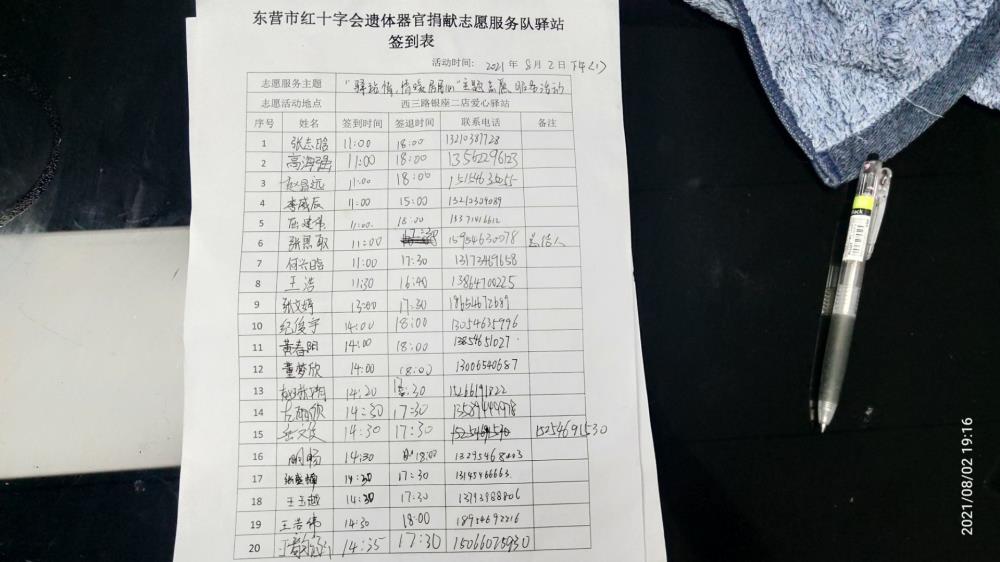 东营市红十字会遗体器官捐献志愿服务队驿站
签到表
活动时间: 2021年8月2日下午(1)
志愿服务主题 "驿站情,情暖"主题志愿服务活动
志愿活动地点 西三路银座二店爱心驿站
序号 姓名 签到时间 签退时间 联系电话 备注
1 张志晗 11:00 18:00 13210387728
2 高海强 11:00 18:00 13562296123
3 赵昌远 11:00 18:00 15154635055
4 李威辰 11:00 15:00
5 11:00 18:00
6 张恩 11:00 17:30 15954630078
7 何兴晗 11:00 17:30
8 王浩 11:30 16:40 13864700225
9 张文婷 13:00 17:30
10 纪俊宇 14:00 18:00 13054635996
11 黄春阳 14:00 18:00 13854651027
12 董梦欣 14:00 18:00 13006540687
13 14:20 17:30
14 14:30 17:30
15 岳文 14:30 17:30 15254691530
16 明畅 14:30 18:00
17 14:30 17:30 13145466663
18 王玉越 14:30 17:30
19 王浩伟 14:30 18:00 18954692216
20 14:35 17:30 15066075930
2021/08/02 19:16